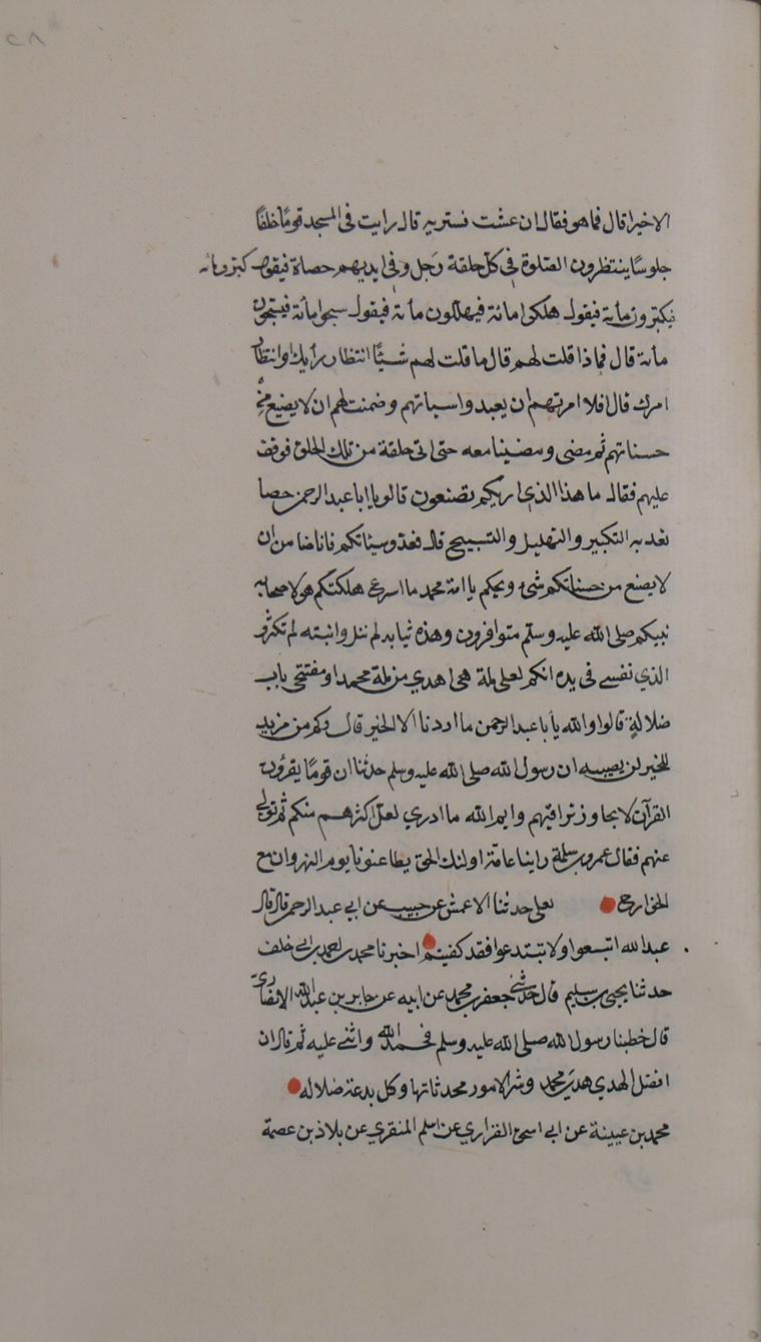 ٢٨
الاخيرا قال فما هو فقال ان عشت فستريه قال رايت في المسجد قومًا حلقًا
جلوسًا ينتظرون الصلوة في كل حلقة رجل وفي ايديهم حصاة فيقول كبروا مائه
فيكبرون مأية فيقول هلكوا مائة فيهللون مأية فيقول سبحوا مأئة فيسبحون
مأئة قال فماذا قلت لهم قال ما قلت لهم شيئًا انتظار رأيك او انتظار
امرك قال افلا امرتهم ان يعبدوا سياتهم وضمنت لهم ان لا يضيع من
حسناتهم ثم مضى ومضينا معه حتى اتى حلقة من تلك الحلق فوقف
عليهم فقال ما هذا الذي اريكم تصنعون قالو يا ابا عبد الرحمن حصا
نعد به التكبير والتهليل والتسبيح قال فعدوا سيئاتكم فانا ضامن ان
لا يضيع من حسناتكم شيء ويحكم يا امة محمد ما اسرع هلكتكم هولا صحابه
نبيكم صلى الله عليه وسلم متوافرون وهذه ثيابه لم تبل وانيته لم تكثر و
الذي نفسي في يده انكم لعلى ملة هي اهدي من ملة محمد او مفتتحي باب
ضلالةٍ قالوا والله يأبا عبد الرحمن ما اردنا الا الخير قال وكم من مريد
للخير لن يصيبه ان رسول الله صلى الله عليه وسلم حدثنا ان قومًا يقرؤن
القرآن لا يجاوز تراقيهم وايم الله ما ادري لعل اكثرهم منكم ثم تولي
عنهم فقال عمرو بن سلمة راينا عامة اولئك الحلق يطاعنونا يوم النهروان مع
الخوارج يعلى حدثنا الاعمش عن حبيب عن ابي عبد الرحمن قال قال
عبد الله اتبعوا ولا تبتدعوا فقد كفيتم اخبرنا محمد بن احمد بن ابي خلف
حدثنا يحيى بن سليم قال حدثني جعفر بن محمد عن ابيه عن جابر بن عبد الله الانصاري
قال خطبنا رسول الله صلى الله عليه وسلم فحمد الله واثنى عليه ثم قال ان
افضل الهدي هدي محمد وشر الامور محدثاتها وكل بدعة ضلاله
محمد بن عيينة عن ابي اسحق الفزاري عن اسلم المنقري عن بلاذ بن عصمة